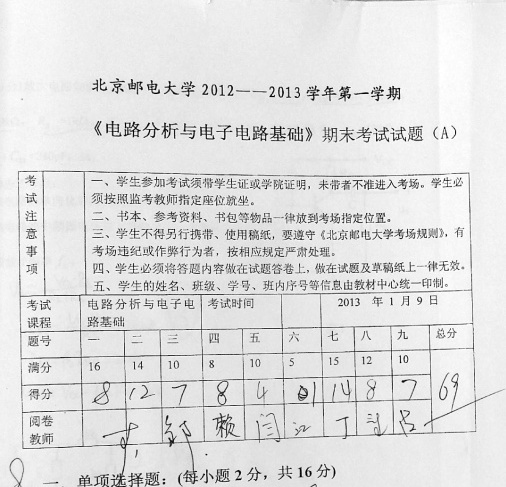 北京邮电大学 2012——2013 学年第一学期
《电路分析与电子电路基础》期末考试试题（A）
考试注意事项
一、学生参加考试须带学生证或学院证明，未带者不准进入考场。学生必
须按照监考教师指定座位就坐。
二、书本、参考资料、书包等物品一律放到考场指定位置。
三、学生不得另行携带、使用稿纸，要遵守《北京邮电大学考场规则》，有
考场违纪或作弊行为者，按相应规定严肃处理。
四、学生必须将答题内容做在试题答卷上，做在试题及草稿纸上一律无效。
五、学生的姓名、班级、学号、班内序号等信息由教材中心统一印制。
考试课程 电路分析与电子电路基础 考试时间 2013 年 1 月 9 日
题号 一 二 三 四 五 六 七 八 九 总分
满分 16 14 10 8 10 5 15 12 10
得分 8 12 7 8 4 1 14 8 7 69
阅卷教师 赖 闫 江 丁 吕
8 一 单项选择题：(每小题 2 分，共 16 分)